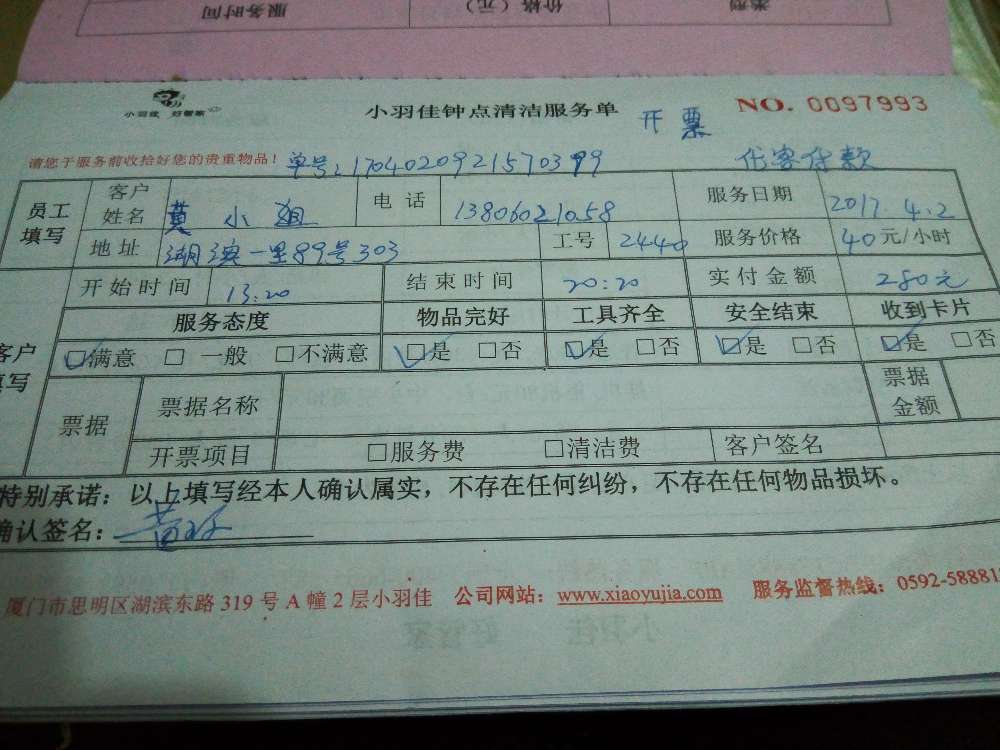 服务时间 价格（元） 类型
小羽佳 好管家
小羽佳钟点清洁服务单 开票 NO. 0097993
请您于服务前收拾好您的贵重物品！ 单号:1704020921570399 代客付款
员工填写 客户姓名 黄小姐 电话 13806021058 服务日期 2017.4.2
地址 湖滨一里89号303 工号 2440 服务价格 40元/小时
开始时间 13:20 结束时间 20:20 实付金额 280元
客户填写 服务态度 物品完好 工具齐全 安全结束 收到卡片
☑满意 □一般 □不满意 ☑是 □否 ☑是 □否 ☑是 □否 ☑是 □否
票据 票据名称 票据金额
开票项目 □服务费 □清洁费 客户签名
特别承诺：以上填写经本人确认属实，不存在任何纠纷，不存在任何物品损坏。
确认签名：
厦门市思明区湖滨东路 319 号 A 幢 2 层小羽佳 公司网站：www.xiaoyujia.com 服务监督热线：0592-588881
小羽佳 好管家